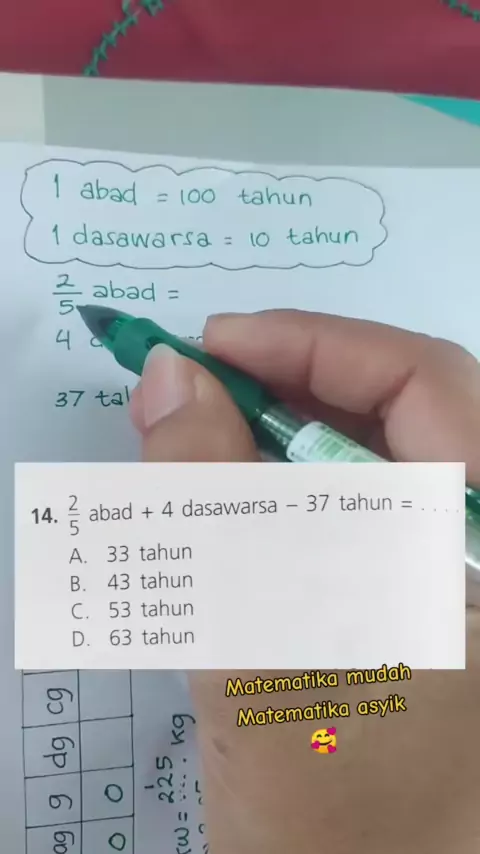 1 abad = 100 tahun
1 dasawarsa = 10 tahun
2/5 abad =
4
37
14. 2/5 abad + 4 dasawarsa − 37 tahun = . . . .
A. 33 tahun
B. 43 tahun
C. 53 tahun
D. 63 tahun
Matematika mudah
Matematika asyik
🥰
cg
dg
g 0
ag 0
225
kg